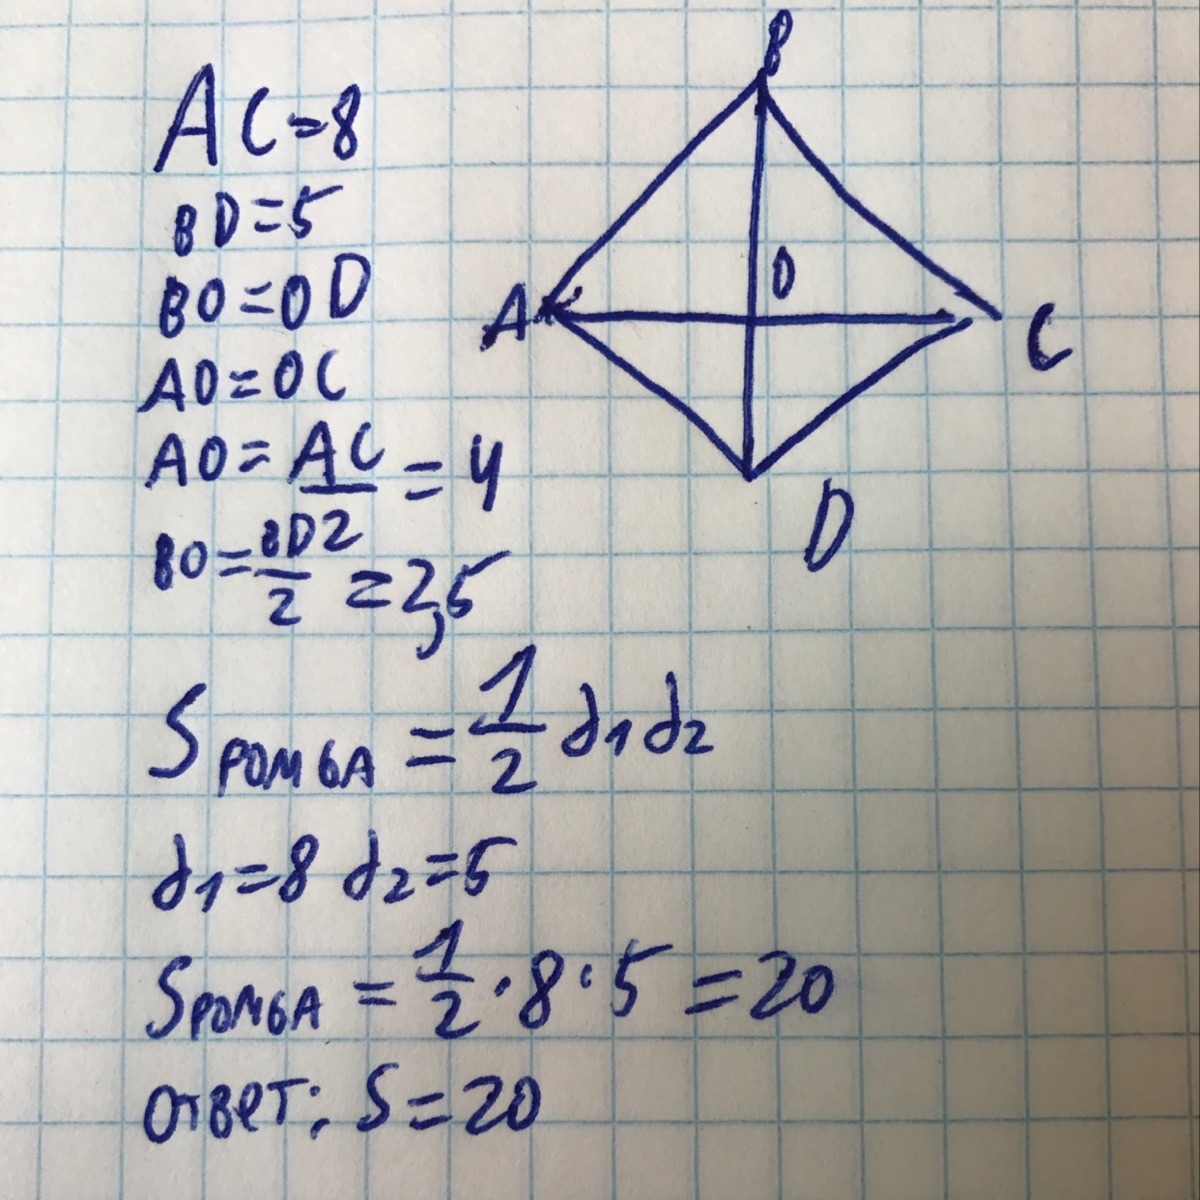 AC=8
BD=5
BO=OD
AO=OC
AO=AC/2=4
BO=BD/2=2,5
B
O
A
C
D
Sромба=1/2 d1d2
d1=8 d2=5
Sромба=1/2·8·5=20
ответ: S=20